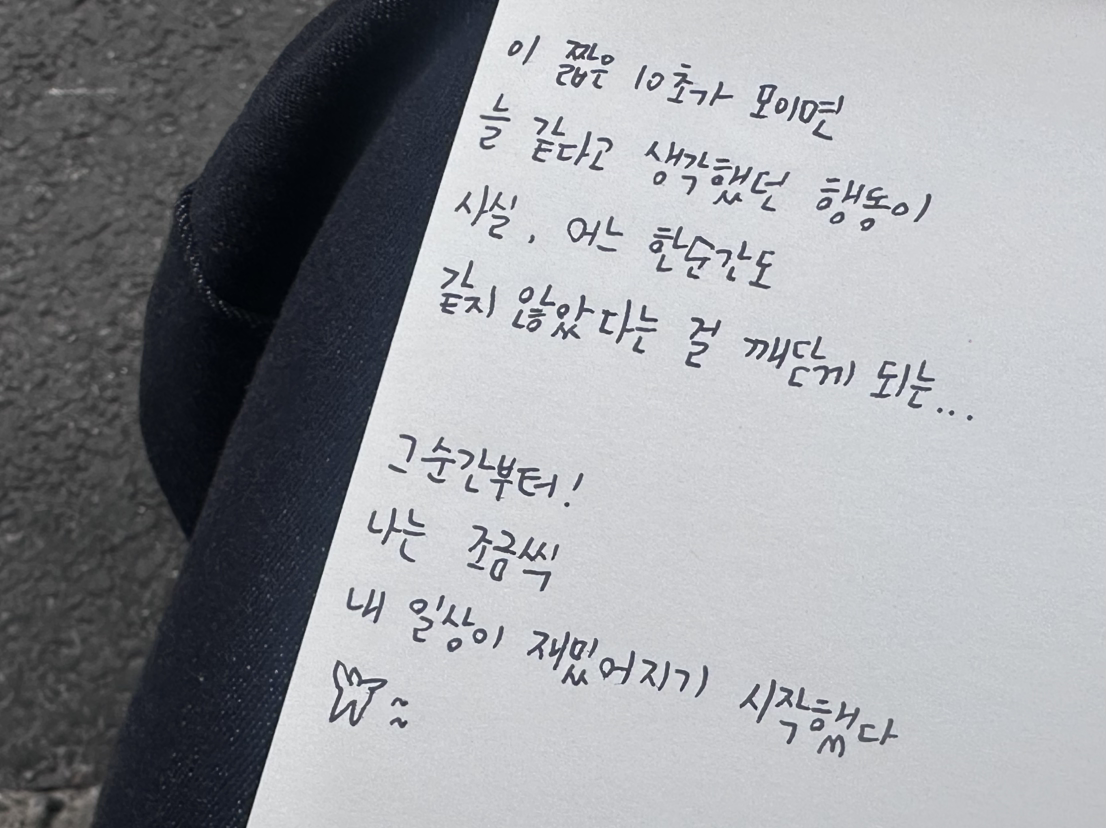 이 짧은 10초가 모이면
늘 같다고 생각했던 행동이
사실, 어느 한순간도
같지 않았다는 걸 깨닫게 되는...
그 순간부터!
나는 조금씩
내 일상이 재밌어지기 시작했다
~~